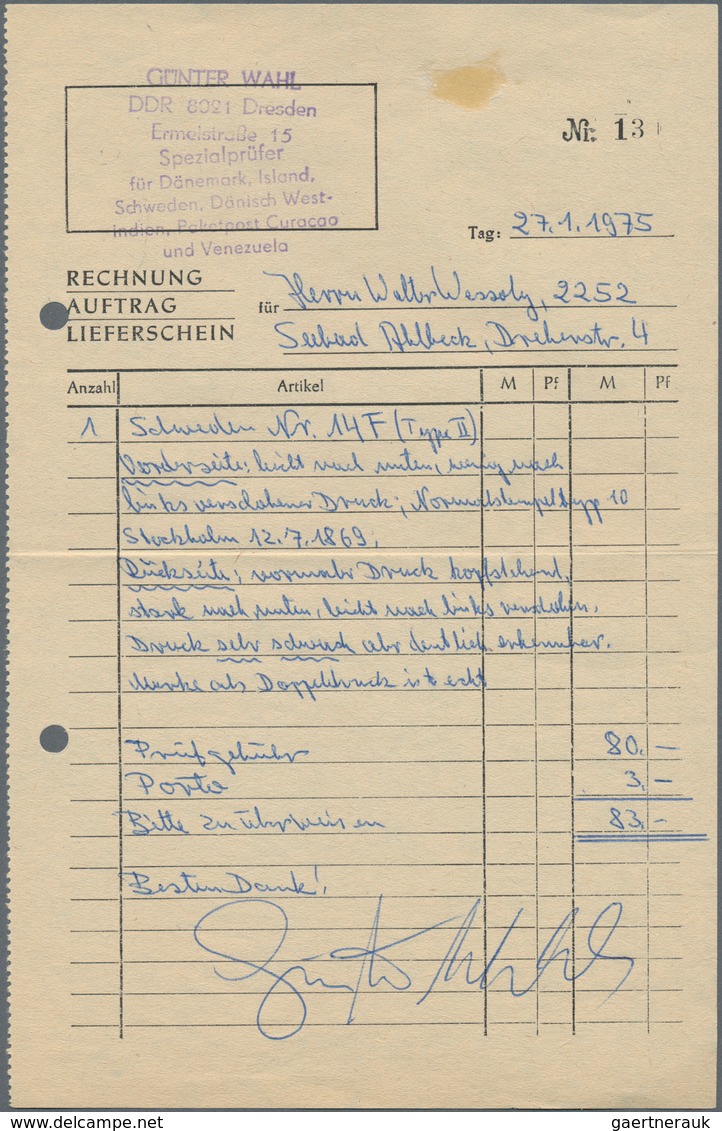 GÜNTER WAHL
DDR 8021 Dresden
Ermelstraße 15
Spezialprüfer
für Dänemark, Island,
Schweden, Dänisch West-
indien, Paketpost Curacao
und Venezuela
Nr. 13
Tag: 27.1.1975
RECHNUNG
AUFTRAG
LIEFERSCHEIN
für Herrn Walter Wessoly, 2252
Seebad Ahlbeck, Dreherstr. 4
Anzahl Artikel M Pf M Pf
1 Schweden Nr. 14F (Type II)
Vorderseite: leicht nach unten, wenig nach
links verschobener Druck; Normalstempeltyp 10
Stockholm 12.7.1869;
Rückseite; normaler Druck kopfstehend,
stark nach unten, leicht nach links verschoben.
Druck sehr schwach aber deutlich erkennbar.
Marke als Doppeldruck ist echt
Prüfgebühr 80,—
Porto 3,—
Bitte zu überweisen 83,—
Besten Dank!
Günter Wahl
www.delcampe.net
gaertnerauk